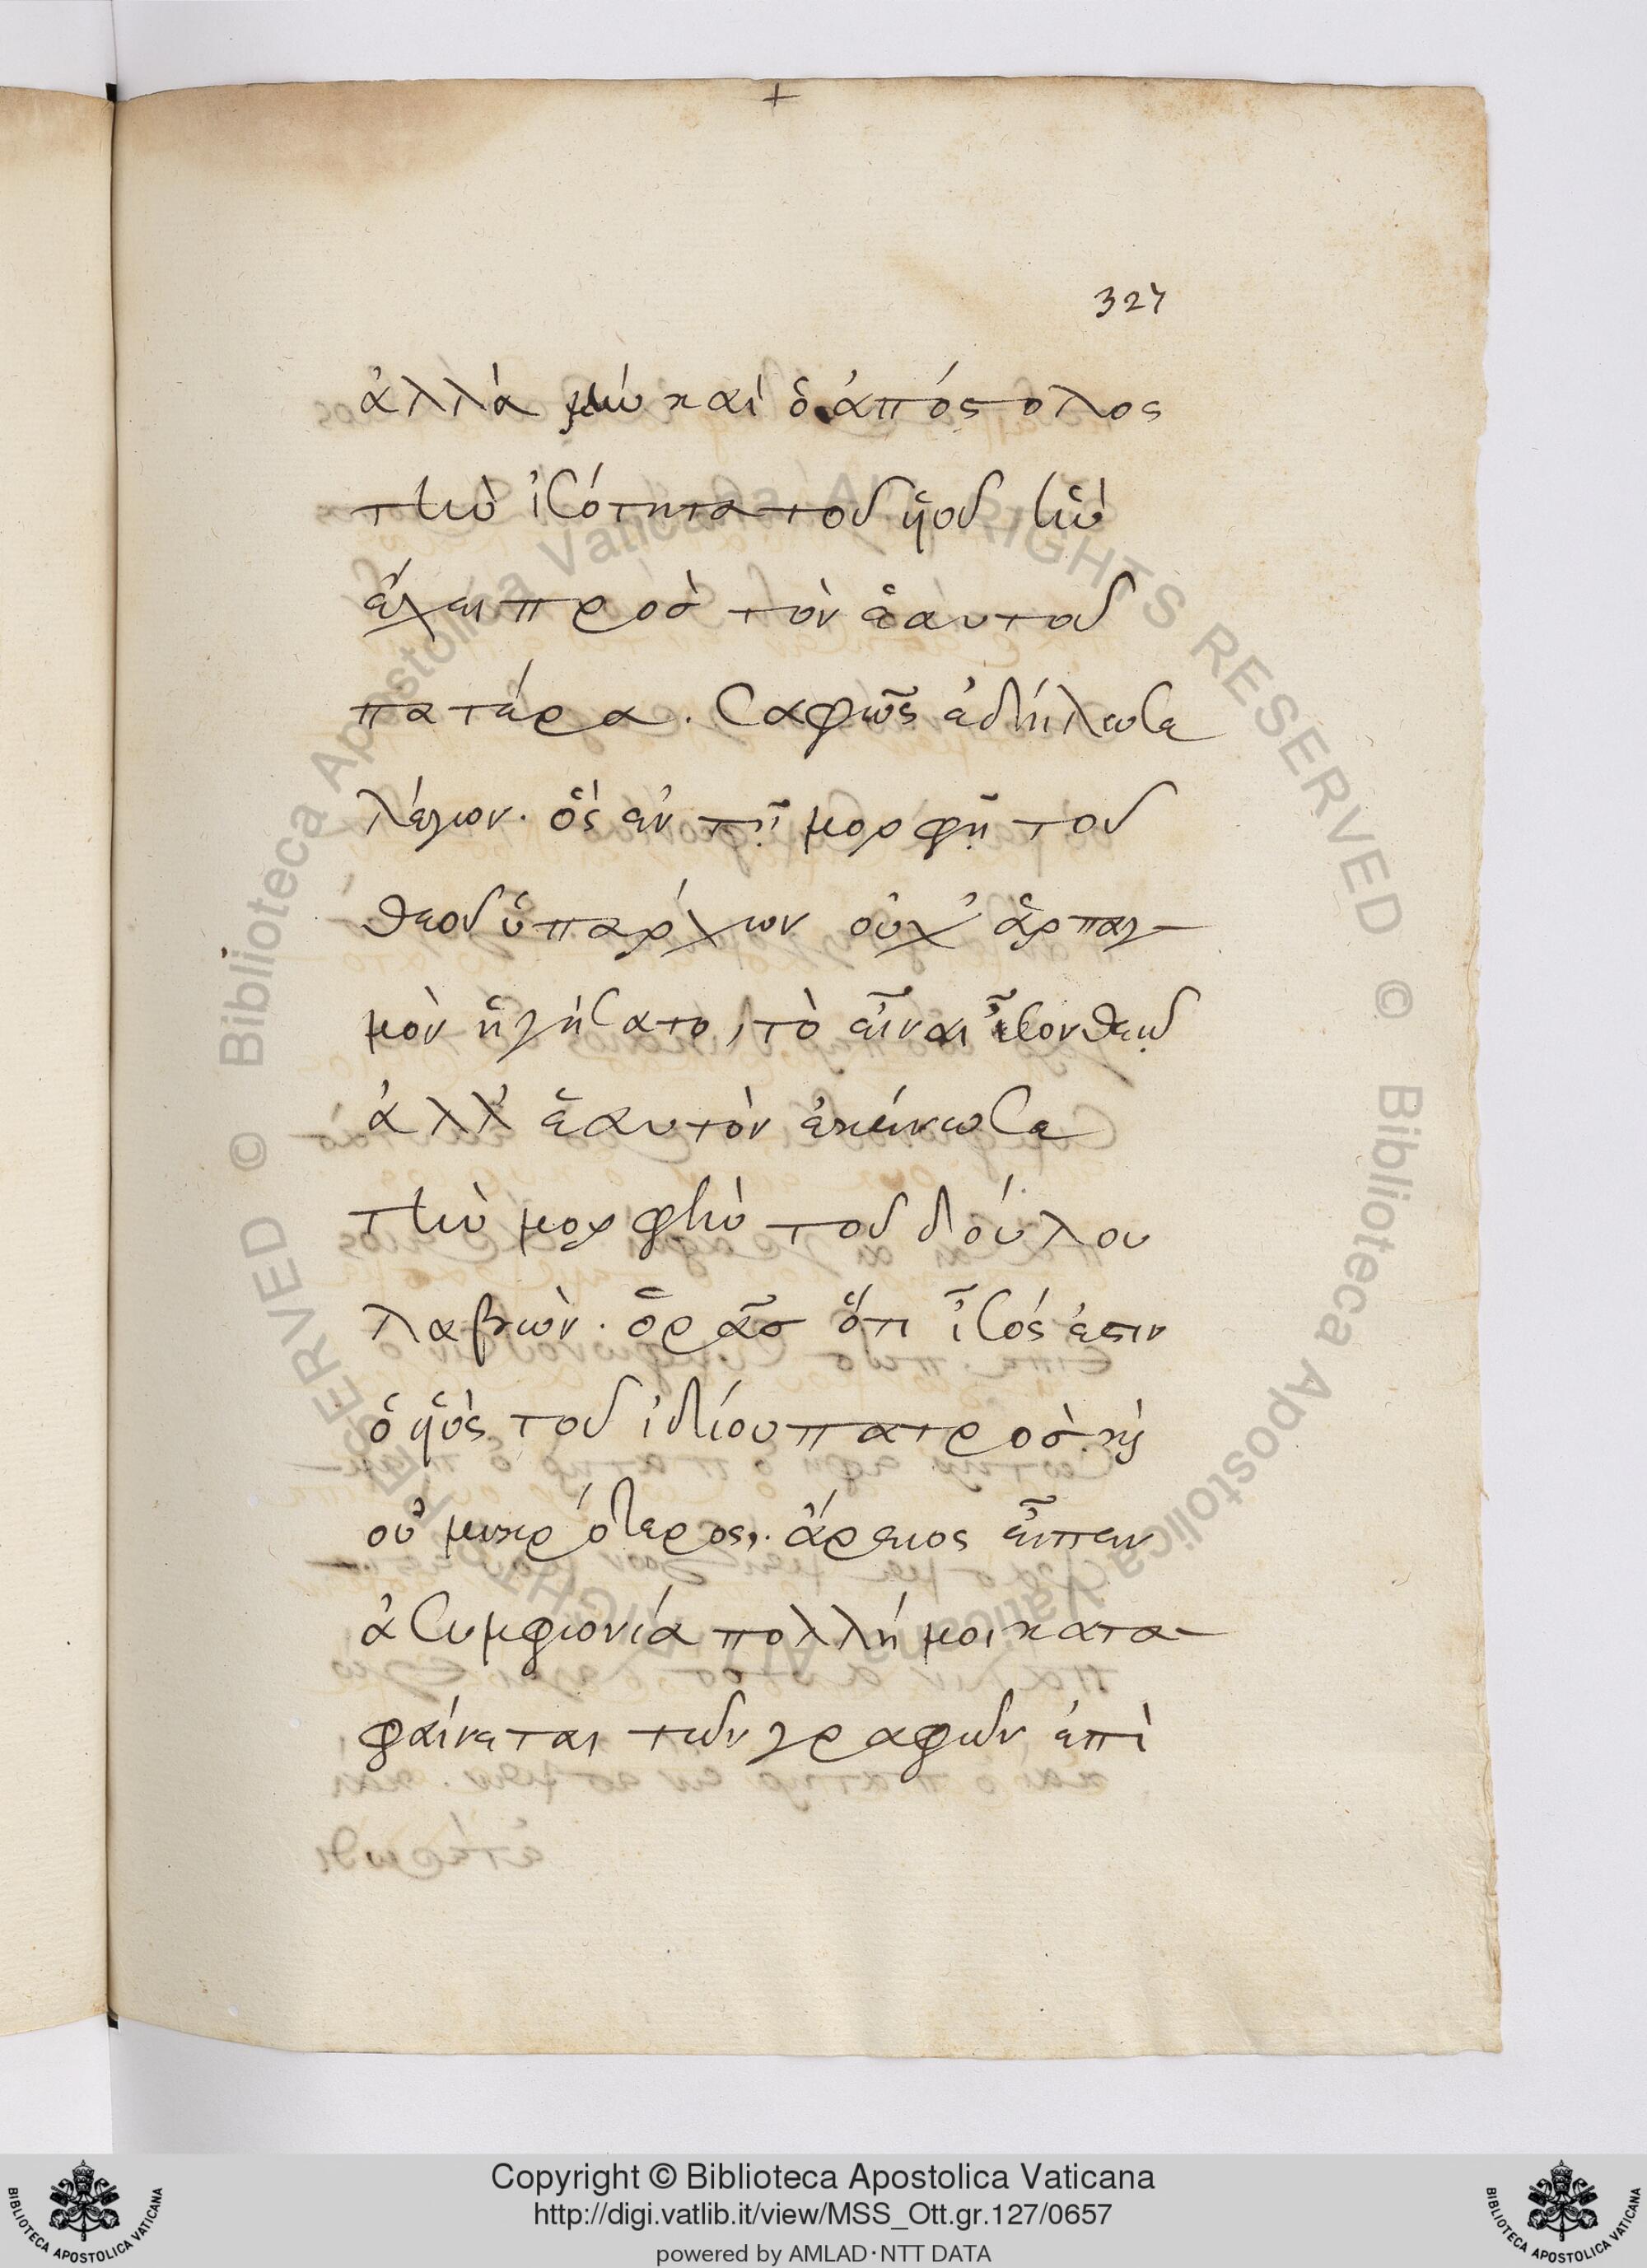 +
327
ἀλλὰ μὴν καὶ ὁ ἀπόστολος
τὴν ἰσότητα τοῦ ὑοῦ ἣν
ἔχει πρὸσ τὸν ἑαυτοῦ
πατέρα. σαφῶς ἐδήλωσε
λέγων. ὃς ἐν τῇ μορφῇ τοῦ
θεοῦ ὑπάρχων οὐχ ἁρπαγ-
μὸν ἡγήσατο, τὸ εἶναι ἶσον θεῷ
ἀλλ' ἑαυτὸν ἐκένωσε
τὴν μορφὴν τοῦ δούλου
λαβών. ὁρᾶσ ὅτι ἶσός ἐστιν
ὁ ὑὸς τοῦ ἰδίου πατρὸσ κὶ
οὐ μικρότερος. ἄρειος εἶπεν
ἀσυμφωνία πολλή μοι κατα-
φαίνεται τῶν γραφῶν ἐπὶ
© Biblioteca Apostolica Vaticana ALL RIGHTS RESERVED © Biblioteca Apostolica Vaticana ALL RIGHTS RESERVED
Copyright © Biblioteca Apostolica Vaticana
http://digi.vatlib.it/view/MSS_Ott.gr.127/0657
powered by AMLAD·NTT DATA
BIBLIOTECA APOSTOLICA VATICANA
BIBLIOTECA APOSTOLICA VATICANA